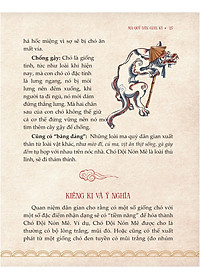 MA QUỶ DÂN GIAN KÝ • 57
há hốc miệng vì sợ sẽ bị chó ăn
mất vía.
Chống gậy: Chó là giống
tinh, tức như loài khỉ hiện
nay, mà con chó có đặc tính
là lưng ngang, nó bị mỏi
lưng nên đêm xuống, khi
người ta đi ngủ nó mới dám
đứng thẳng lưng. Mà hai chân
sau của chó không thể giữ
cả cơ thể đứng vững nên nó mò
tìm thêm cây gậy để chống.
Cúng cô "bảng đảng": Những loài ma quỷ dân gian xuất
thân từ loài vật khác, như mèo đi, dê ma, vịt ăn thịt sống, gà gáy
đêm tụ họp với nhau trên nóc nhà. Chó Đội Nón Mê là loài thủ
lĩnh, sẽ đi thám thính.
KIÊNG KỊ VÀ Ý NGHĨA
Quan niệm dân gian cho rằng có một số giống chó với
một số đặc điểm nhận dạng sẽ có "tiềm năng" để hóa thành
Chó Đội Nón Mê. Ví dụ, Chó Đội Nón Mê được cho là
thường có bộ lông trắng, mũi đỏ. Hoặc cũng có thể xuất
phát từ một giống chó đen tuyền có mũi trắng (do nhúm